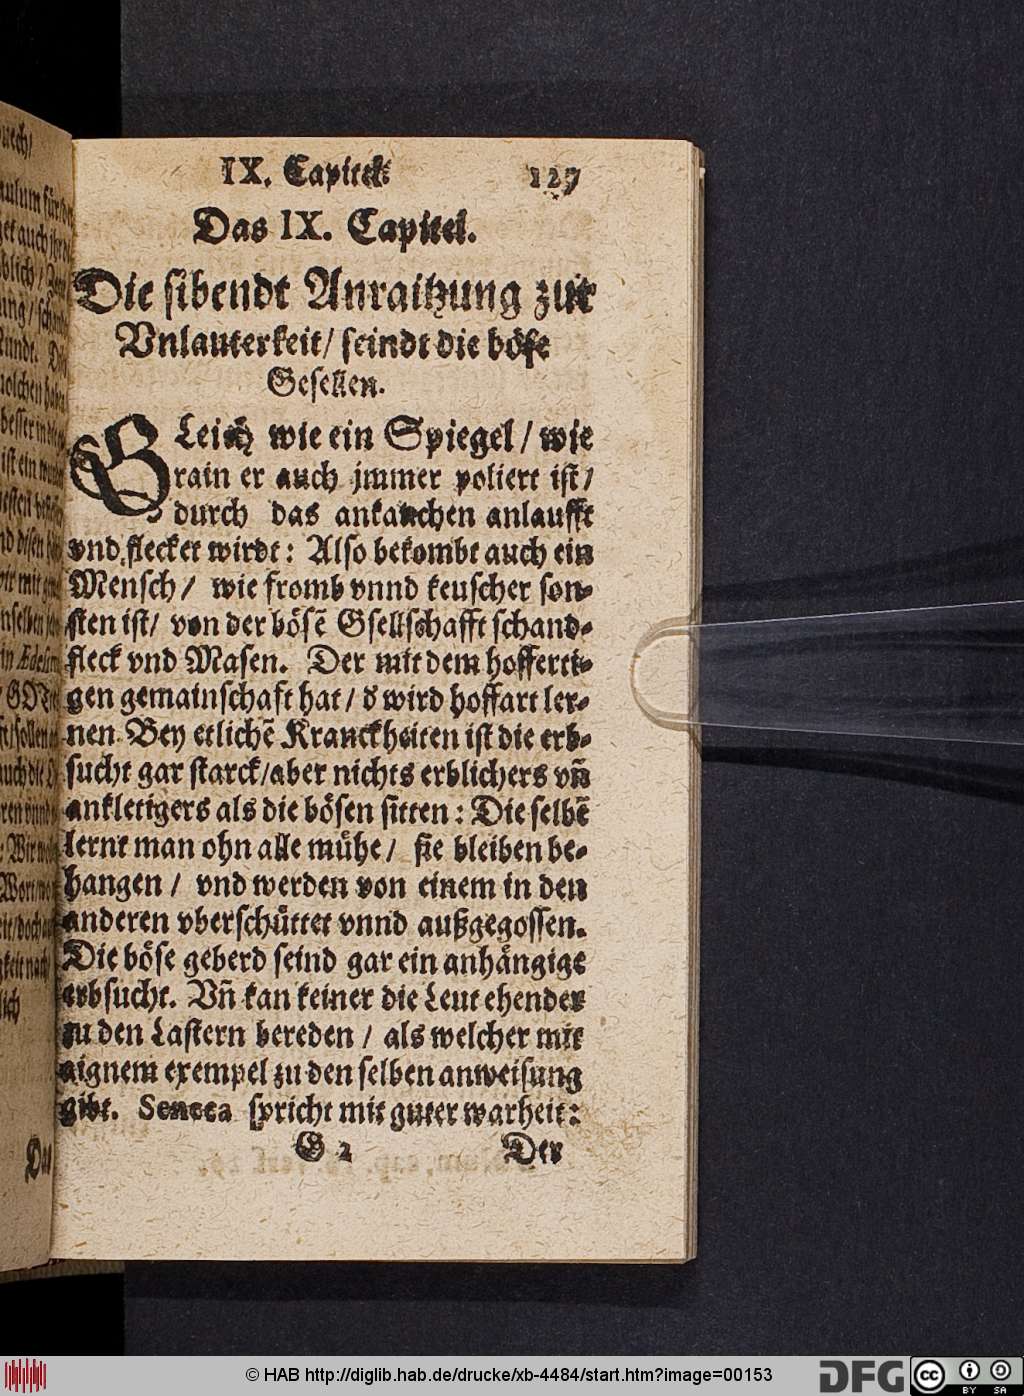 IX. Capitel.
127
Das IX. Capitel.
Die sibendt Anraitzung zur
Vnlauterkeit/ seindt die böse
Gesellen.
GLeich wie ein Spiegel / wie
rain er auch jmmer poliert ist/
durch das ankauchen anlaufft
vnd flecket wirdt: Also bekombt auch ein
Mensch/ wie fromb vnnd keuscher son-
sten ist/ von der bösẽ Gsellschafft schand-
fleck vnd Masen. Der mit dem hofferti-
gen gemainschaft hat / d' wird hoffart ler-
nen. Bey etlichẽ Kranckheiten ist die erb-
sucht gar starck/aber nichts erblichers vñ
ankletigers als die bösen sitten: Die selbẽ
lernt man ohn alle mühe/ sie bleiben be-
hangen / vnd werden von einem in den
anderen vberschüttet vnnd außgegossen.
Die böse geberd seind gar ein anhängige
erbsucht. Vñ kan keiner die Leut ehender
zu den Lastern bereden / als welcher mit
aignem exempel zu den selben anweisung
gibt. Seneca spricht mit guter warheit:
Der
© HAB http://diglib.hab.de/drucke/xb-4484/start.htm?image=00153
DFG
cc
BY SA